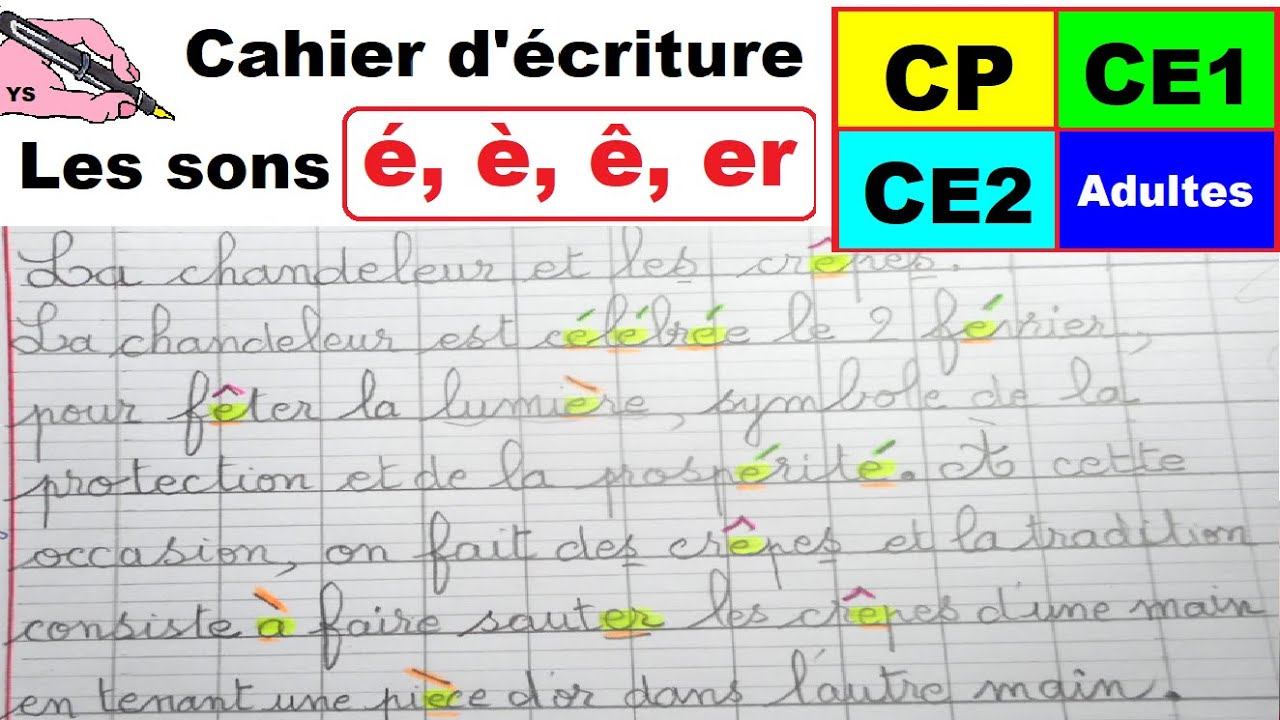 YS
Cahier d'écriture
Les sons é, è, ê, er
CP CE1
CE2 Adultes
La chandeleur et les crêpes.
La chandeleur est célébrée le 2 février,
pour fêter la lumière, symbole de la
protection et de la prospérité. À cette
occasion, on fait des crêpes et la tradition
consiste à faire sauter les crêpes d'une main
en tenant une pièce d'or dans l'autre main.